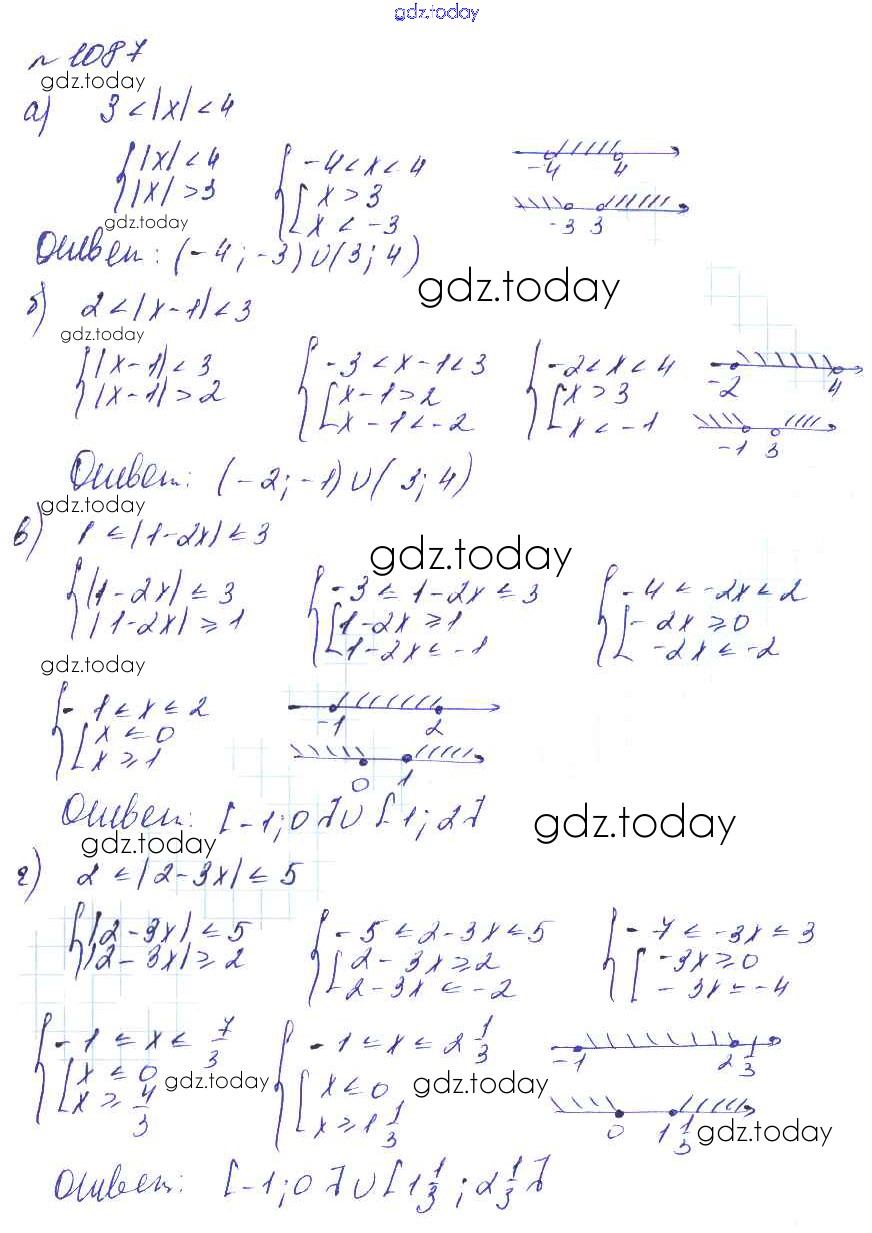 gdz.today
№ 1087
gdz.today
а) 3 < |x| < 4
{ |x| < 4 { -4 < x < 4 -4 4
{ |x| > 3 { [ x > 3
[ x < -3 -3 3
gdz.today
Ответ: (-4; -3) ∪ (3; 4)
gdz.today
б) 2 < |x - 1| < 3
gdz.today
{ |x-1| < 3 { -3 < x-1 < 3 { -2 < x < 4 -2 4
{ |x-1| > 2 { [ x-1 > 2 { [ x > 3
[ x - 1 < -2 [ x < -1 -1 3
Ответ: (-2; -1) ∪ (3; 4)
gdz.today
в) 1 ≤ |1-2x| ≤ 3
gdz.today
{ |1-2x| ≤ 3 { -3 ≤ 1-2x ≤ 3 { -4 ≤ -2x ≤ 2
{ |1-2x| ≥ 1 { [ 1-2x ≥ 1 { [ -2x ≥ 0
[ 1-2x ≤ -1 [ -2x ≤ -2
gdz.today
{ -1 ≤ x ≤ 2 -1 2
{ [ x ≤ 0
[ x ≥ 1 0 1
Ответ: [-1; 0] ∪ [1; 2]
gdz.today
gdz.today
г) 2 ≤ |2-3x| ≤ 5
{ |2-3x| ≤ 5 { -5 ≤ 2-3x ≤ 5 { -7 ≤ -3x ≤ 3
{ |2-3x| ≥ 2 { [ 2-3x ≥ 2 { [ -3x ≥ 0
[ 2-3x ≤ -2 [ -3x ≤ -4
{ -1 ≤ x ≤ 7/3 { -1 ≤ x ≤ 2 1/3 -1 2 1/3
{ [ x ≤ 0 gdz.today { [ x ≤ 0 gdz.today
[ x ≥ 4/3 [ x ≥ 1 1/3 0 1 1/3 gdz.today
Ответ: [-1; 0] ∪ [1 1/3; 2 1/3]